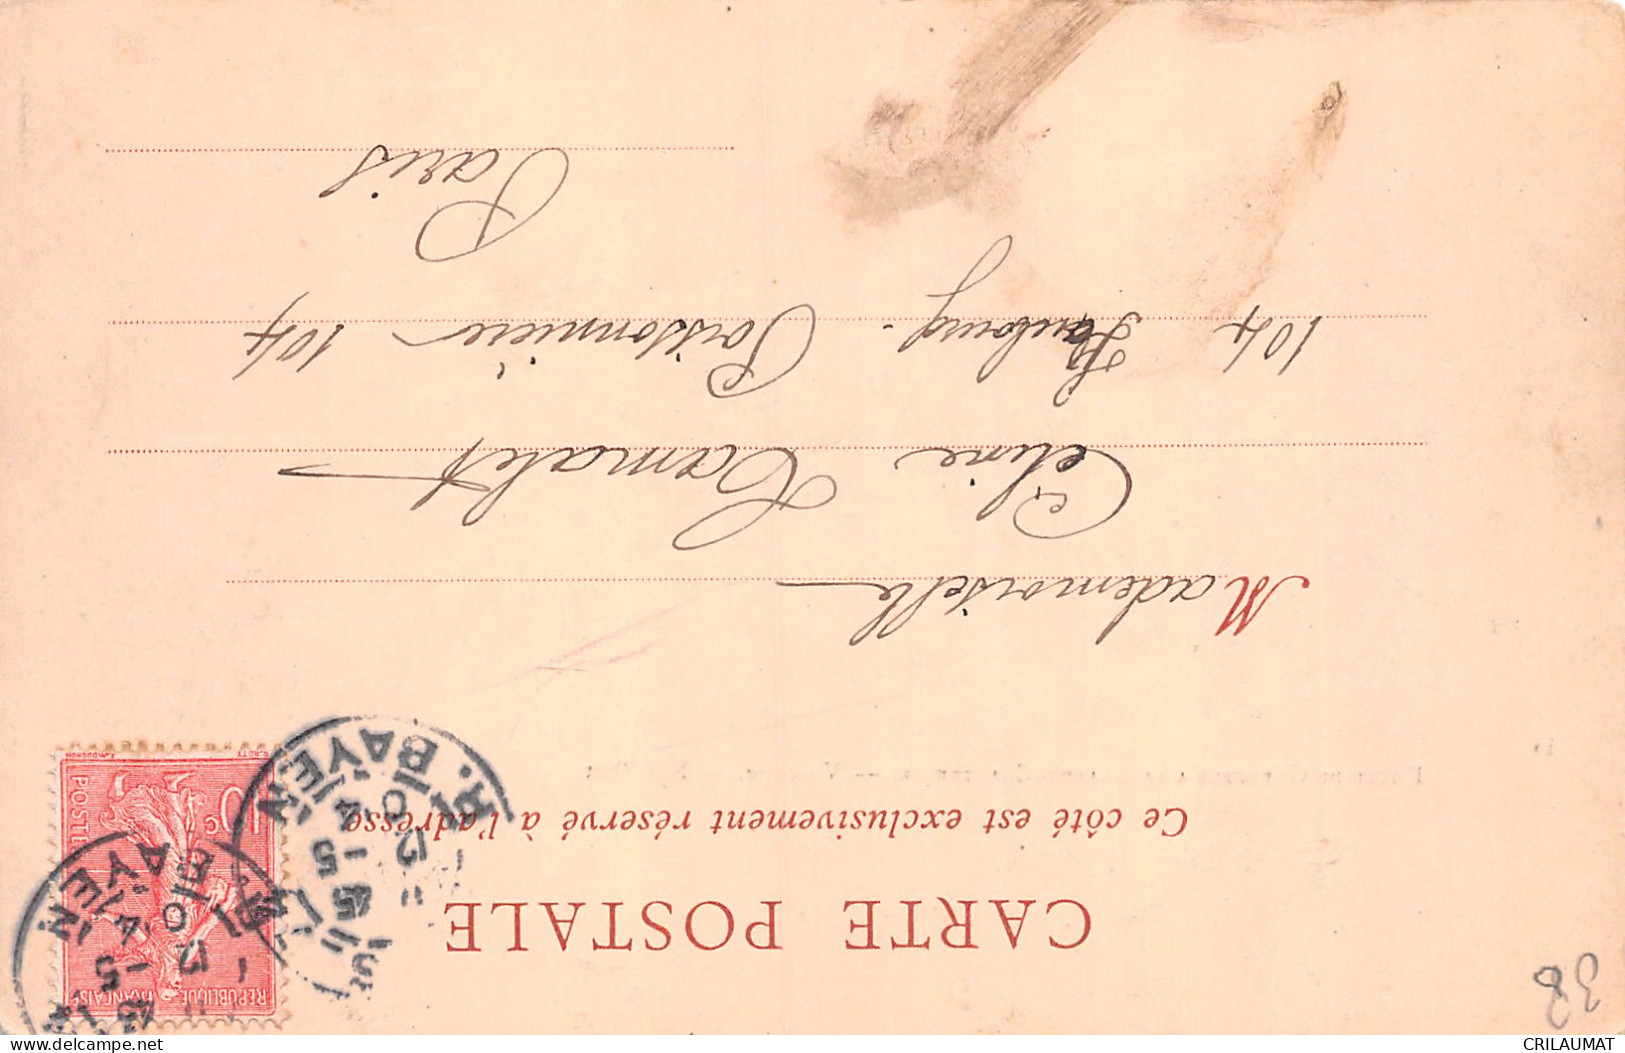 CARTE POSTALE
Ce côté est exclusivement réservé à l'adresse
Mademoiselle
Céline Hamalet
104 Faubourg Poissonnière 104
Paris
RÉPUBLIQUE FRANÇAISE
POSTES
10c
R. BAYEN
R. BAYEN
38
CRILAUMAT